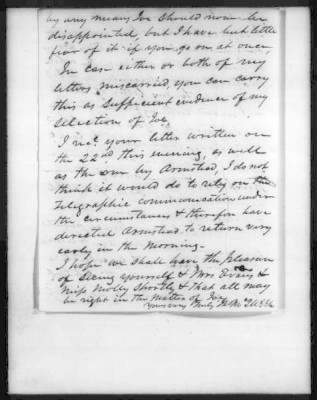 by any means Joe should now be
disappointed, but I have but little
fear of it if you go on at once.
In case either or both of my
letters miscarried, you can carry
this as sufficient evidence of my
selection of Joe.
I recd. your letter written on
the 22nd this evening, as well
as the one by Armstead, I do not
think it would do to rely on the
telegraphic communication under
the circumstances & therefore have
directed Armstead to return very
early in the morning.
I hope we shall have the pleasure
of seeing yourself & Mrs Evans &
Miss Molly shortly & that all may
be right in the matter of Joe.
Yours very truly